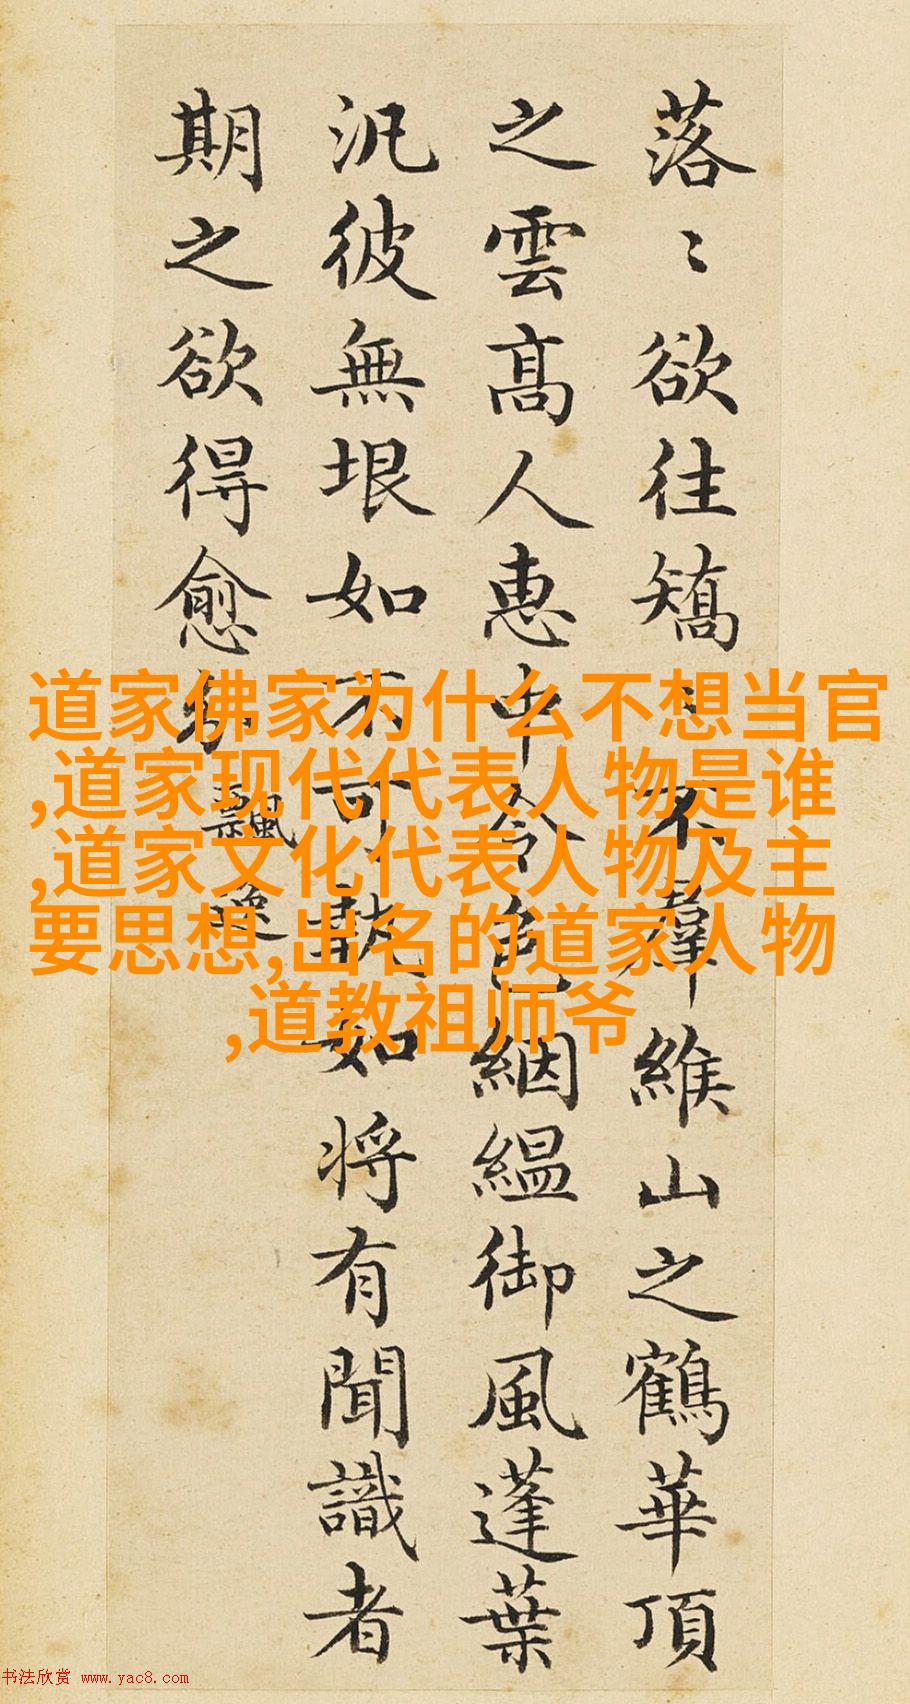 落〻欲往矯〻不羣緱山之鶴華頂
之雲髙人惠中令色絪縕御風蓬葉
汎彼無垠如不可執如將有聞識者
期之欲得愈分
飄逸
道家佛家为什么不想当官
,道家现代代表人物是谁
,道家文化代表人物及主
要思想,出名的道家人物
,道教祖师爷
书法欣赏 www.yac8.com